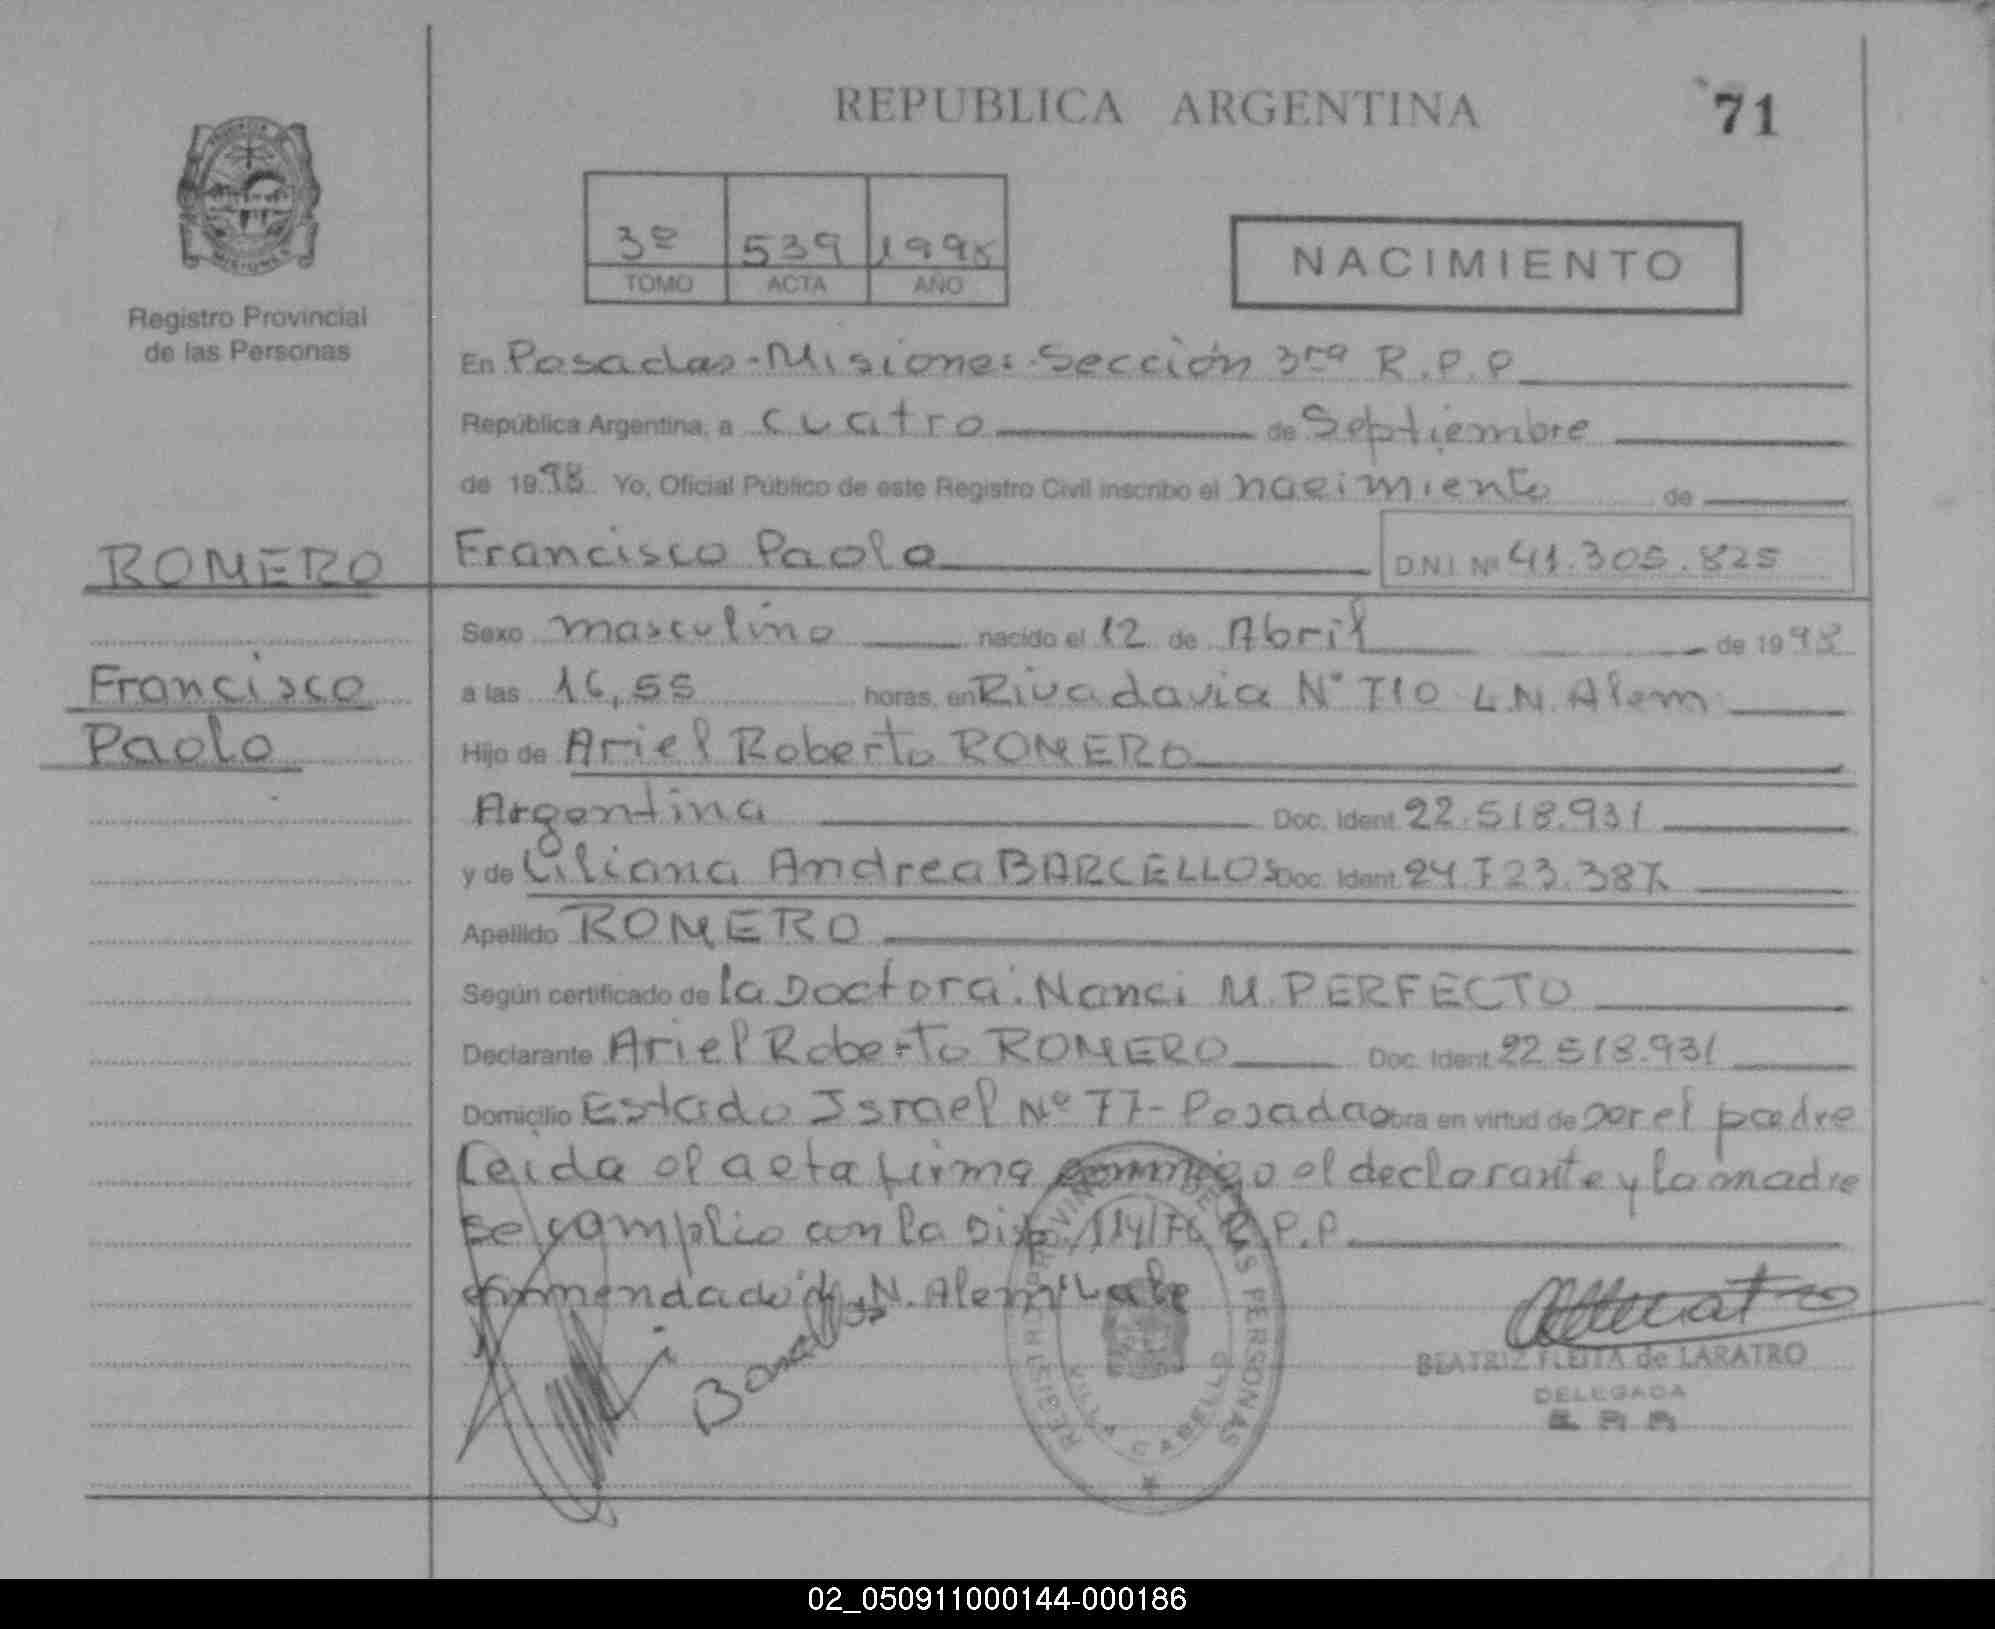 REPUBLICA ARGENTINA
71
3º 539 1998
TOMO ACTA AÑO
NACIMIENTO
Registro Provincial
de las Personas
En Posadas-Misiones-Sección 3ra R.P.P
República Argentina, a cuatro de Septiembre
de 1998 Yo, Oficial Público de este Registro Civil inscribo el nacimiento de
ROMERO
Francisco Paolo
D.N.I. Nº 41.305.825
Sexo masculino nacido el 12 de Abril de 1998
Francisco
a las 16,55 horas, en Rivadavia Nº 710 L.N. Alem
Paolo
Hijo de Ariel Roberto ROMERO
Argentina Doc. Ident. 22.518.931
y de Liliana Andrea BARCELLOS Doc. Ident. 24.723.387
Apellido ROMERO
Según certificado de la Doctora: Nanci M. PERFECTO
Declarante Ariel Roberto ROMERO Doc. Ident. 22.518.931
Domicilio Estado Israel Nº 77-Posadas obra en virtud de ser el padre
Leida el acta firma conmigo el declarante y la madre
se complio con la Disp. 114/76 R.P.P.
enmendado N. Alem Vale
Barcellos
REGISTRO PROVINCIAL DE LAS PERSONAS
VILLA CABELLO
BEATRIZ FLEITA de LARATRO
DELEGADA
02_050911000144-000186